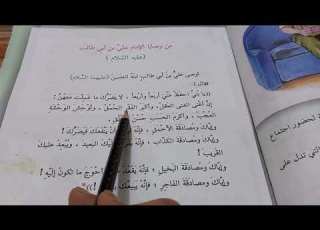 من وصايا الإمام علي بن أبي طالب
(عليه السلام)
أوصى علي بن أبي طالب ابنه الحسن (عليهما السلام)
فقال:
((يا بُنَيَّ احفَظْ عنّي أربعاً وأربعاً، لا يَضُرُّكَ ما عَمِلتَ مَعَهُنَّ:
إنَّ أغنى الغنى العقلُ، وأكبرَ الفقرِ الحُمقُ، وأوحشَ الوحشةِ
العُجبُ، وأكرمَ الحسبِ حُسنُ
وإيّاكَ ومصادقةَ الأحمقِ، فإنّهُ أن ينفعكَ فيضرُّكَ!
وإيّاكَ ومصادقةَ الكذّابِ، فإنّهُ عليكَ البعيدَ، ويُبعِدُ عليكَ
القريبَ!
وإيّاكَ ومصادقةَ البخيلِ، فإنّهُ يقعدُ أحوجَ ما تكونُ إليهِ!
وإيّاكَ ومصادقةَ الفاجرِ، فإنّهُ يبيعُكَ
لحضور اجتماع
تدل على